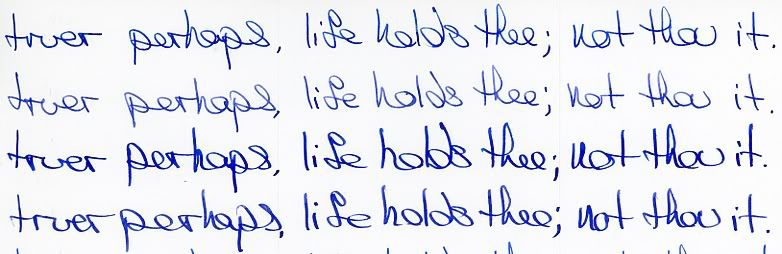 truer perhaps, life holds thee; not thou it.
truer perhaps, life holds thee; not thou it.
truer perhaps, life holds thee; not thou it.
truer perhaps, life holds thee; not thou it.